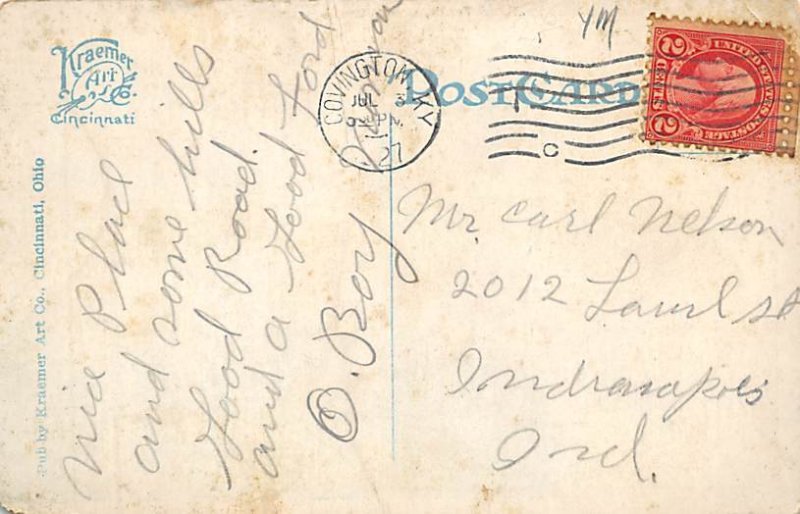 Kraemer
Art
Co
Cincinnati
Pub by Kraemer Art Co., Cincinnati, Ohio
POST CARD
COVINGTON, KY
JUL 3
PM
27
C
YM
UNITED STATES POSTAGE
2
2
Nice Place
and some hills
Good Road.
and a Good Ford
O. Boy
Mr. Carl Nelson
2012 Laurel st
Indianapolis
Ind.